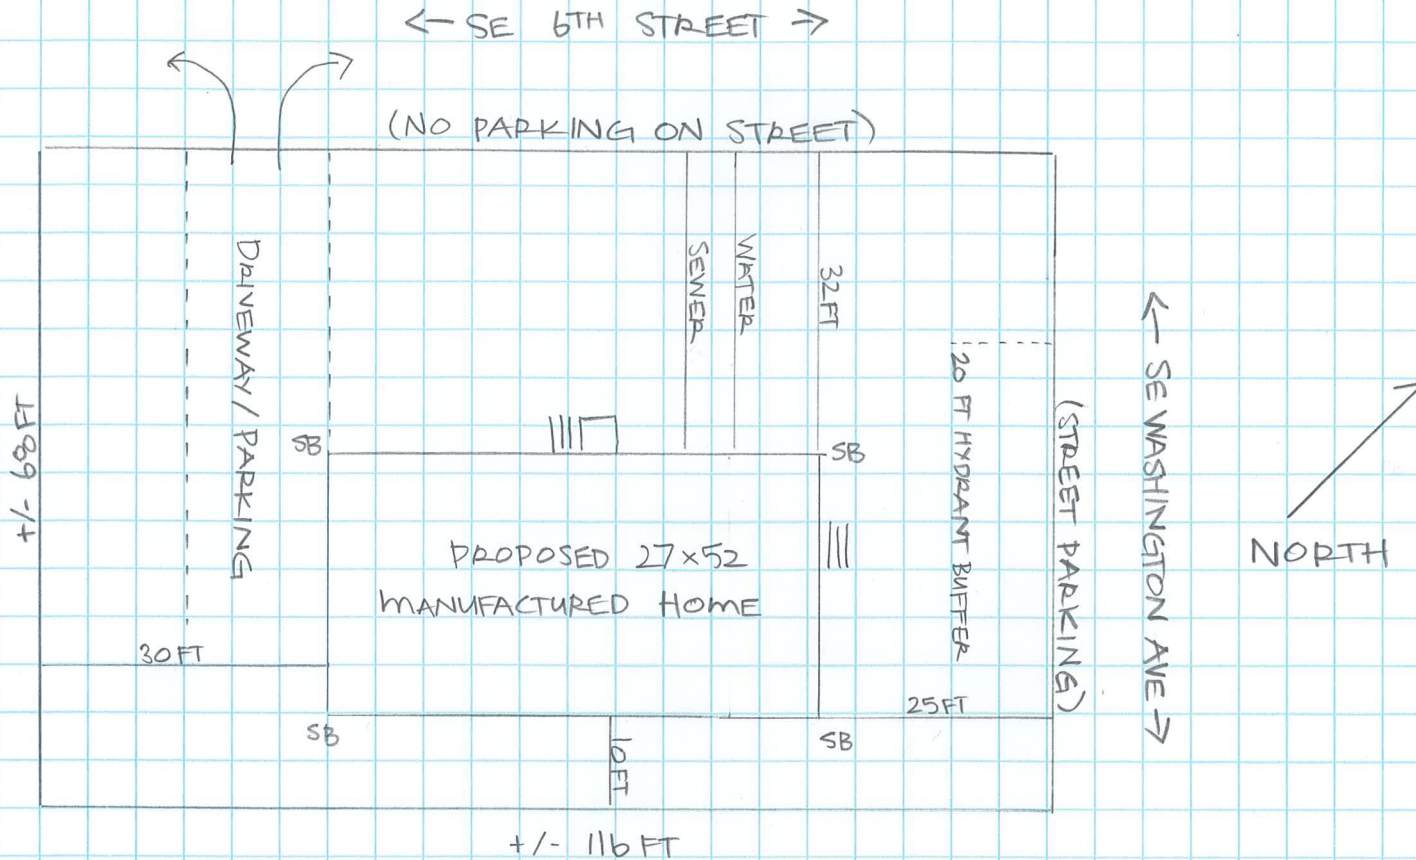 ← SE 6TH STREET →
(NO PARKING ON STREET)
DRIVEWAY/PARKING
SEWER
WATER
32FT
20 FT HYDRANT BUFFER
(STREET PARKING)
← SE WASHINGTON AVE →
NORTH
+/- 68 FT
SB
SB
PROPOSED 27×52
MANUFACTURED HOME
30 FT
25 FT
SB
SB
10FT
+/- 116 FT